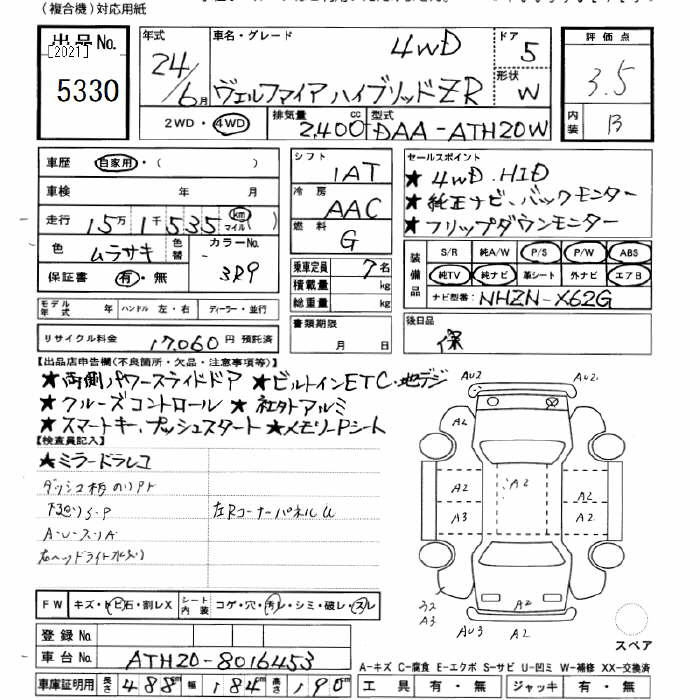 (複合機)対応用紙
出品No.
[2021]
5330
年式 24/6月
車名・グレード 4WD
ヴェルファイア ハイブリッド ZR
ドア 5
形状 W
2WD・4WD
排気量 2,400cc
型式 DAA-ATH20W
評価点
3.5
内装 B
車歴 自家用・( )
車検 年 月
走行 15万1千535 km マイル ( )
色 ムラサキ 色替 カラーNo. 3R9
保証書 有・無
モデル年式 年 ハンドル 左・右 ディーラー・並行
リサイクル料金 17,060 円 預託済
シフト 1AT
冷房 AAC
燃料 G
乗車定員 7名
積載量 kg
総重量 kg
書類期限 月 日
セールスポイント
★4WD.HID
★純正ナビ、バックモニター
★フリップダウンモニター
装備品 S/R 純A/W P/S P/W ABS
純TV 純ナビ 革シート 外ナビ エアB
ナビ型番: NHZN-X62G
後日品
保
【出品店申告欄(不良箇所・欠品・注意事項等)】
★両側パワースライドドア ★ビルトインETC・地デジ
★クルーズコントロール ★社外アルミ
★スマートキー、プッシュスタート ★メモリーPシート
【検査員記入】
★ミラードラレコ
A・U・スリA
左Rコーナーパネル U
AU2 AU2
A2 A2
A2 A2 A2
A3 A2
A2
A3 AU3 A2
スペア
FW キズ・トビ石・割レX
シート内装 コゲ・穴・汚レ・シミ・破レ・スレ
登録No.
車台No. ATH20-8016453
車庫証明用 長さ 488cm 幅 184cm 高さ 190cm
A-キズ C-腐食 E-エクボ S-サビ U-凹ミ W-補修 XX-交換済
工具 有・無 ジャッキ 有・無